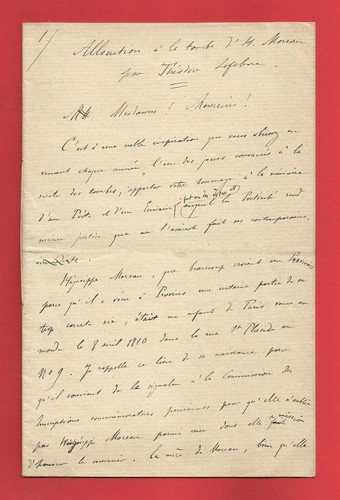 1/
Allocution à la tombe d'H. Moreau
par Théodore Lefebvre.
Mesdames ! Messieurs !
C'est à une noble inspiration que vous obéissez en
venant chaque année, l'un des jours consacrés à la
visite des tombes, apporter votre hommage à la mémoire
d'un Poète et d'un Ecrivain auquel la Postérité rend
mieux justice que ne l'avaient fait ses contemporains.
Hégésippe Moreau, que beaucoup croient un Provinois
parce qu'il a vécu à Provins une certaine partie de sa
trop courte vie, était un enfant de Paris venu au
monde le 8 avril 1810 dans la rue St Placide au
No 9. Je rappelle ce lieu de sa naissance parce
qu'il convient de le signaler à la Commission des
Inscriptions commémoratives parisiennes pour qu'elle n'oublie
pas Hégésippe Moreau parmi ceux dont elle a mission
d'honorer la mémoire. La mère de Moreau, bien qu'elle